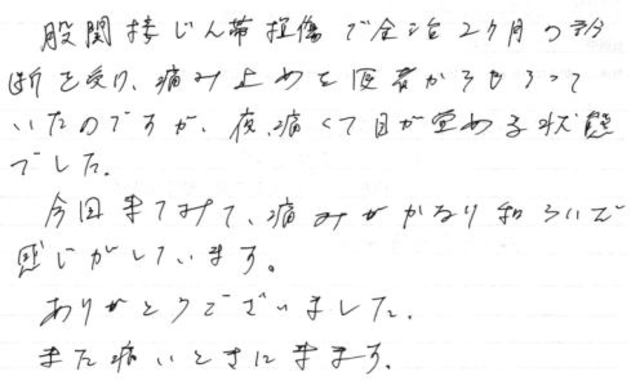 股関接じん帯損傷で全治2ケ月の診
断を受け、痛み止めを医者からもらって
いたのですが、夜、痛くて目が覚める状態
でした。
今回来てみて、痛みがかなり和らいだ
感じがしています。
ありがとうございました。
また痛いときに来ます。